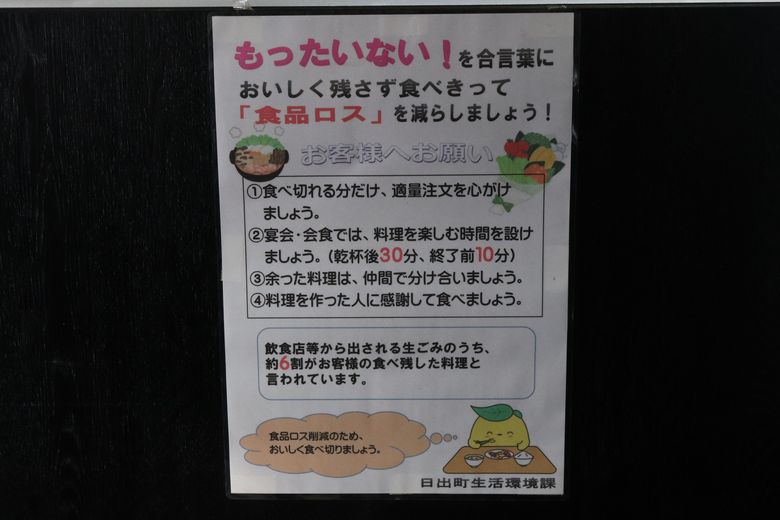 もったいない!を合言葉に
おいしく残さず食べきって
「食品ロス」を減らしましょう!
お客様へお願い
①食べ切れる分だけ、適量注文を心がけ
ましょう。
②宴会・会食では、料理を楽しむ時間を設け
ましょう。(乾杯後30分、終了前10分)
③余った料理は、仲間で分け合いましょう。
④料理を作った人に感謝して食べましょう。
飲食店等から出される生ごみのうち、
約6割がお客様の食べ残した料理と
言われています。
食品ロス削減のため、
おいしく食べ切りましょう。
日出町生活環境課